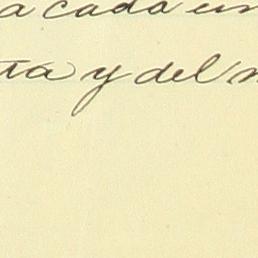 a cada un
ta y del